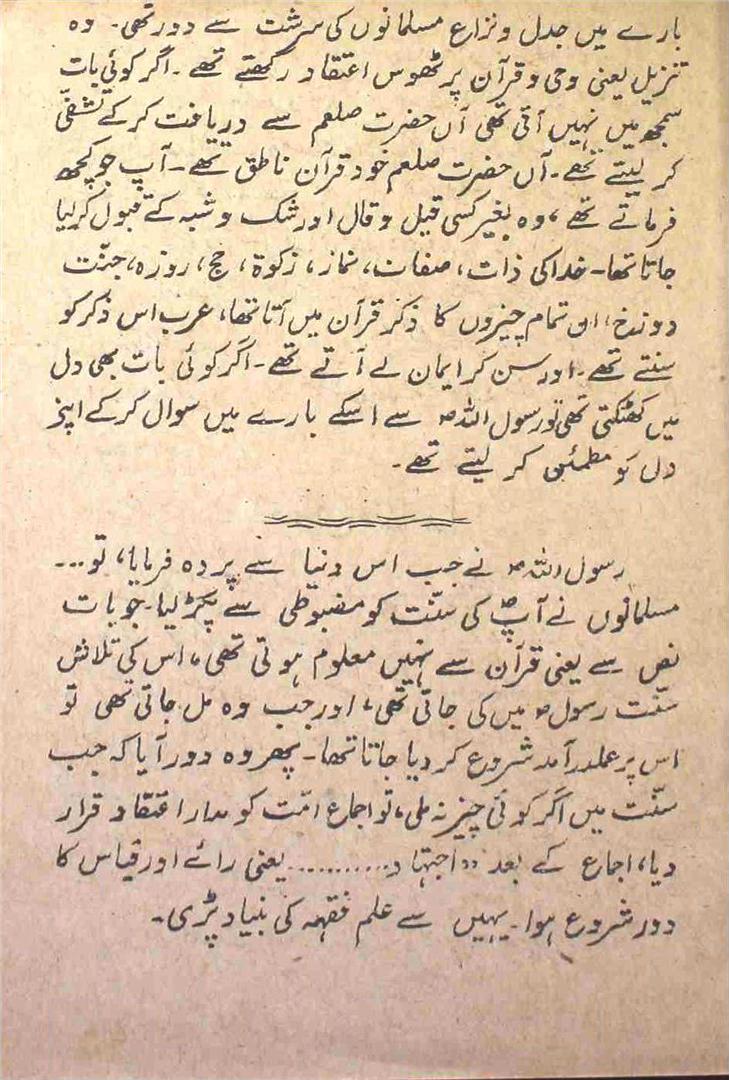 بارے میں جدل و نزاع مسلمانوں کی سرشت سے دور تھی۔ وہ
تنزیل یعنی وحی و قرآن پر ٹھوس اعتقاد رکھتے تھے۔ اگر کوئی بات
سمجھ میں نہیں آتی تھی آں حضرت صلعم سے دریافت کر کے تشفّی
کر لیتے تھے۔ آں حضرت صلعم خود قرآن ناطق تھے۔ آپ جو کچھ
فرماتے تھے، وہ بغیر کسی قیل و قال اور شک و شبہ کے قبول کر لیا
جاتا تھا۔ خدا کی ذات، صفات، نماز، زکوٰة، حج، روزہ، جنّت
دوزخ، ان تمام چیزوں کا ذکر قرآن میں آتا تھا، عرب اس ذکر کو
سنتے تھے۔ اور سن کر ایمان لے آتے تھے۔ اگر کوئی بات بھی دل
میں کھٹکتی تھی تو رسول اللہؐ سے اسکے بارے میں سوال کر کے اپنے
دل کو مطمئن کر لیتے تھے۔
رسول اللہؐ نے جب اس دنیا سے پردہ فرمایا، تو...
مسلمانوں نے آپؐ کی سنّت کو مضبوطی سے پکڑ لیا۔ جو بات
نص سے یعنی قرآن سے نہیں معلوم ہوتی تھی، اس کی تلاش
سنّت رسولؐ میں کی جاتی تھی، اور جب وہ مل جاتی تھی تو
اس پر عملدرآمد شروع کر دیا جاتا تھا۔ پھر وہ دور آیا کہ جب
سنّت میں اگر کوئی چیز نہ ملی، تو اجماع امّت کو مدار اعتقاد قرار
دیا، اجماع کے بعد "اجتہاد........... یعنی رائے اور قیاس کا
دور شروع ہوا۔ یہیں سے علم فقہہ کی بنیاد پڑی۔